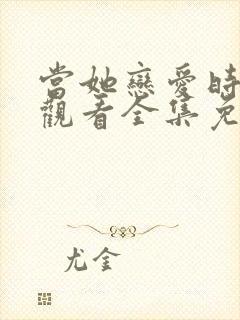 當她戀愛時
觀看全集免
尤金